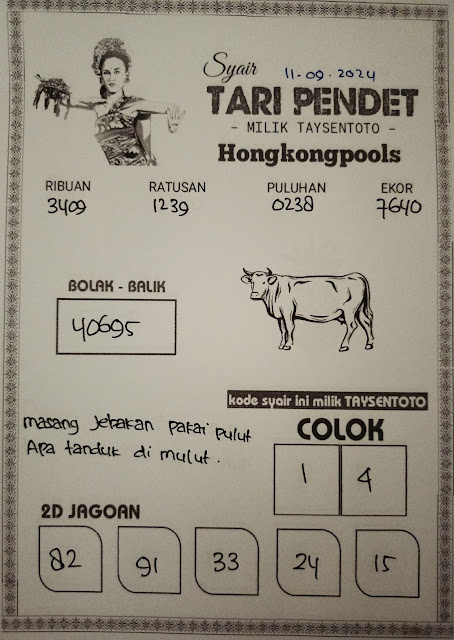 Syair 11-09-2024
TARI PENDET
- MILIK TAYSENTOTO -
Hongkongpools
RIBUAN RATUSAN PULUHAN EKOR
3409 1239 0238 7640
BOLAK - BALIK
40695
kode syair ini milik TAYSENTOTO
masang Jebakan pakai pulut
Apa tanduk di mulut.
COLOK
1 4
2D JAGOAN
82 91 33 24 15